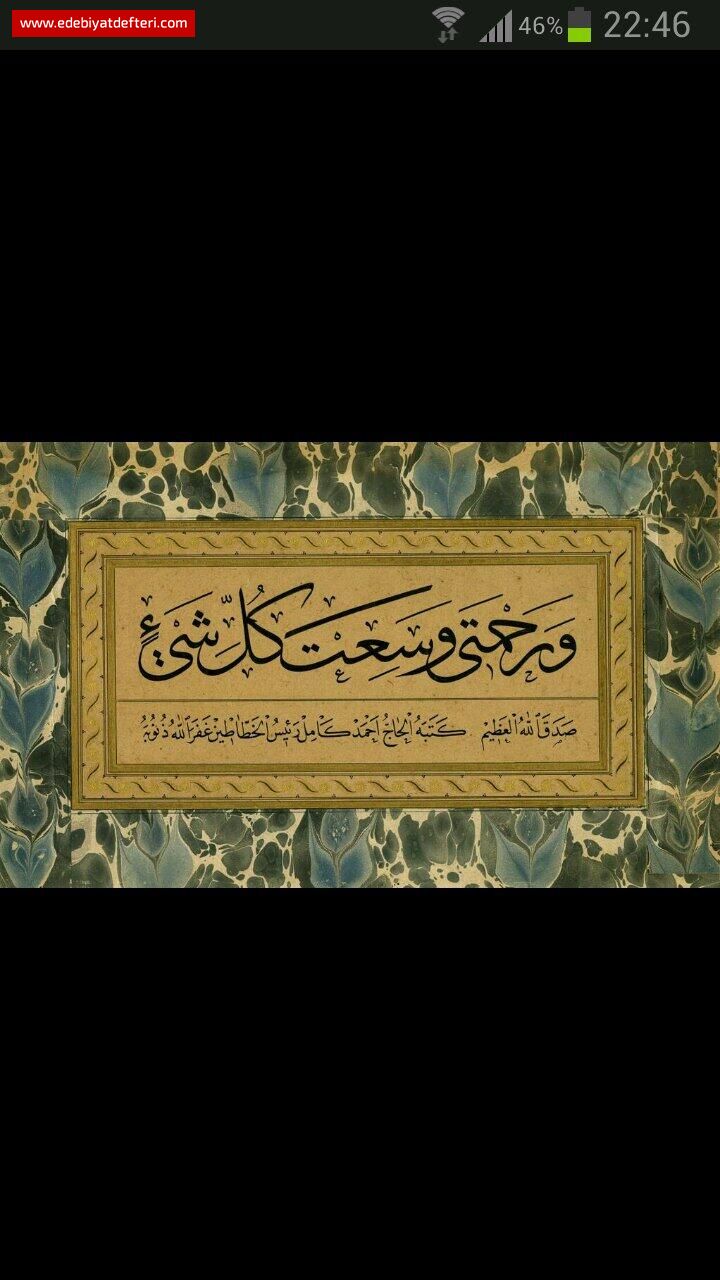 www.edebiyatdefteri.com
46% 22:46
وَرَحْمَتى وَسِعَتْ كُلَّ شَىْءٍ
صَدَقَ ٱللهُ الْعَظِيمْ كَتَبَهُ الْحَاجُّ اَحْمَدْ كَامِلْ رَئِيسُ الْخَطَّاطِينْ غَفَرَ ٱللهُ ذُنُوبَهُ